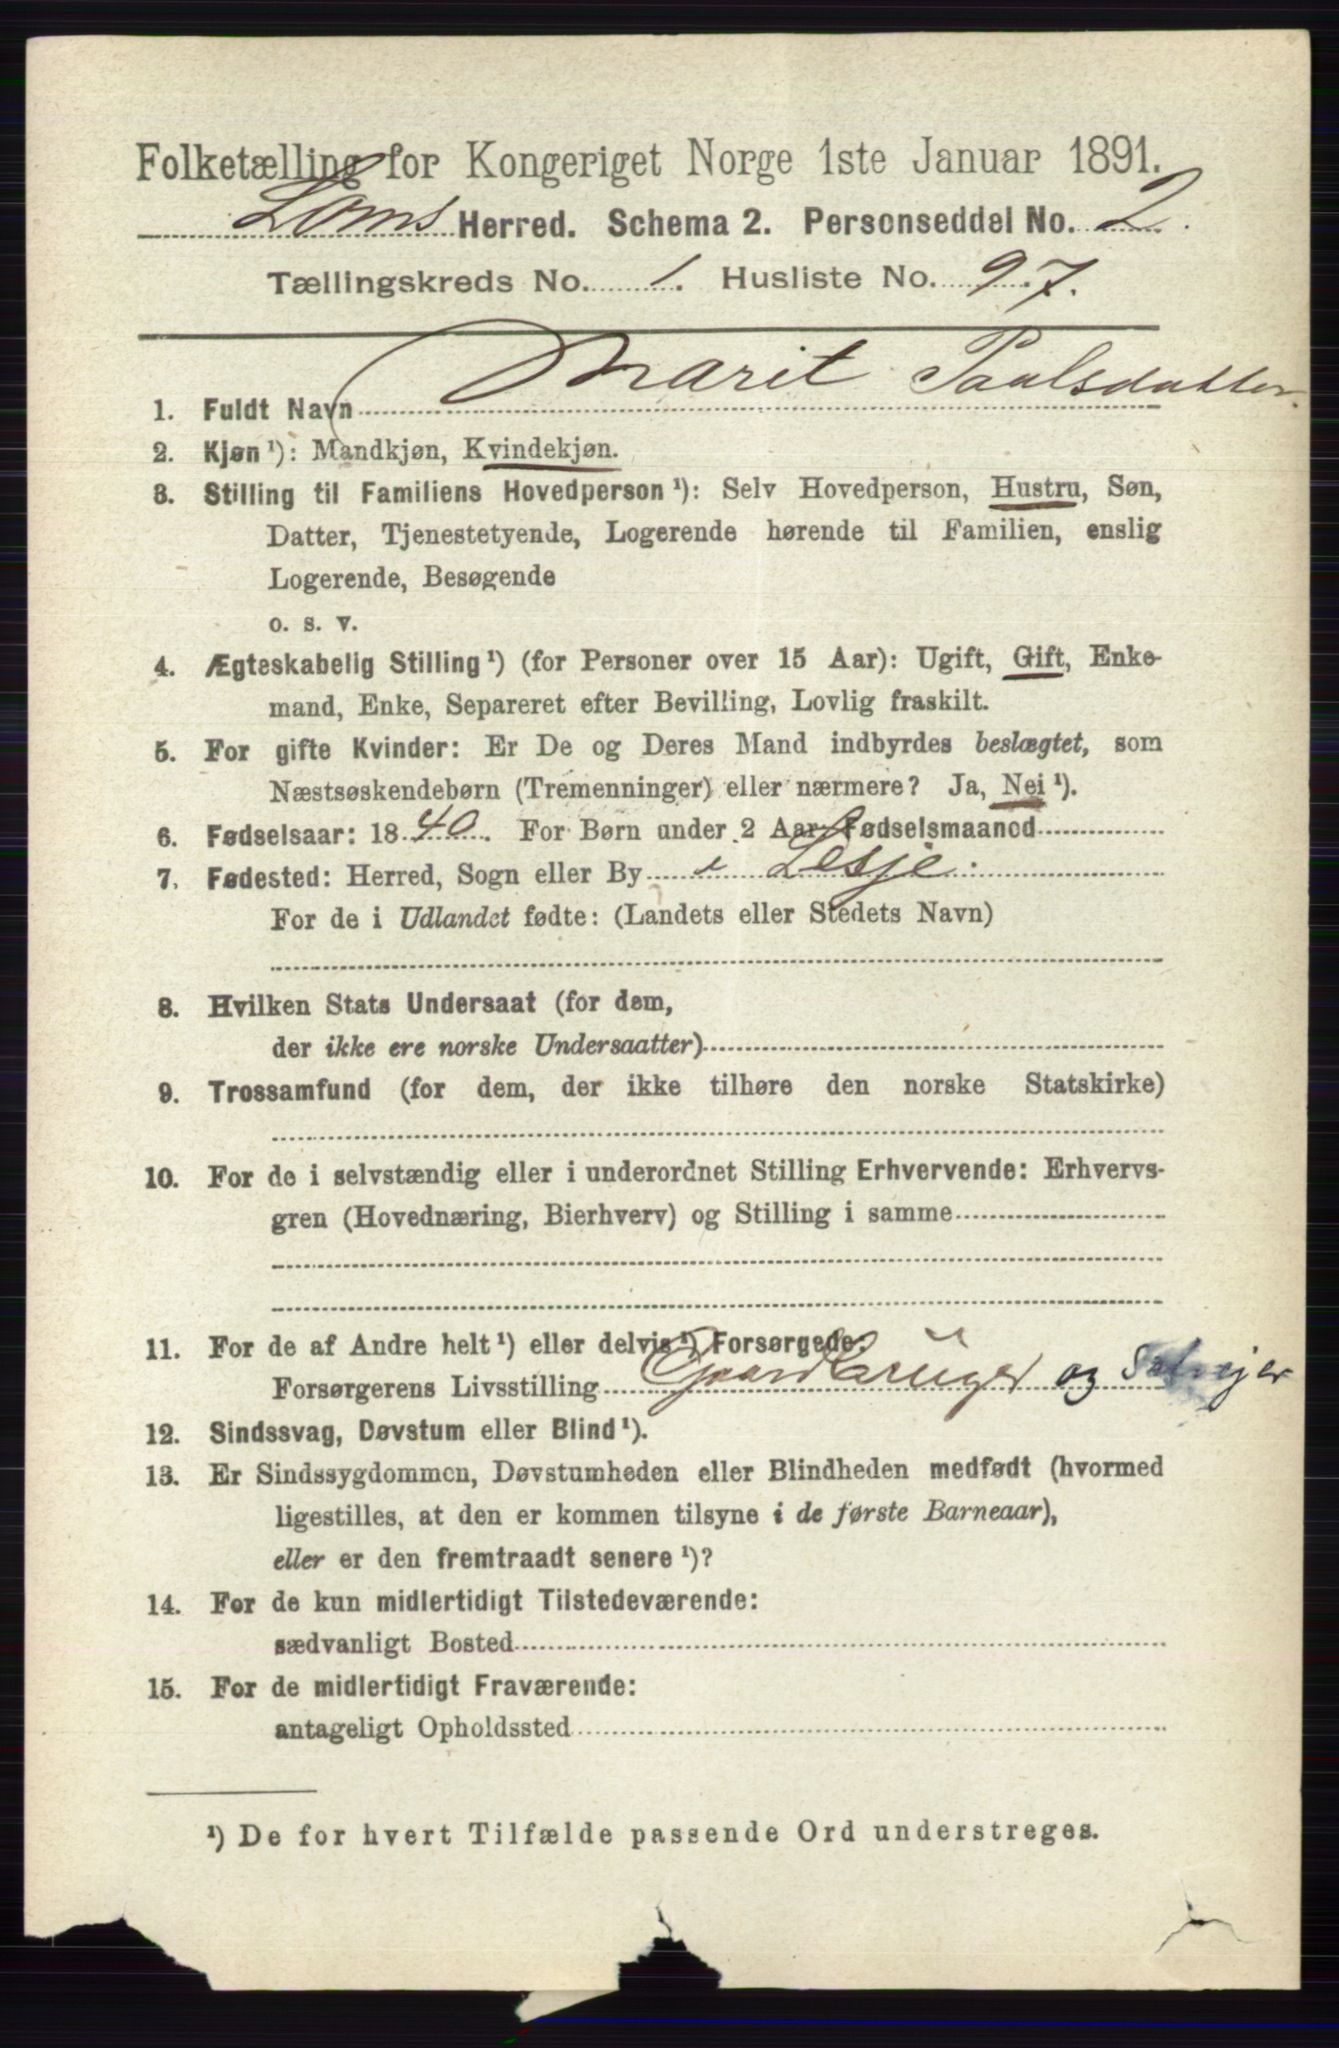 Folketælling for Kongeriget Norge 1ste Januar 1891.
Loms Herred. Schema 2. Personseddel No. 2.
Tællingskreds No. 1. Husliste No. 97.
1. Fuldt Navn Marit Paulsdatter.
2. Kjøn¹): Mandkjøn, Kvindekjøn.
3. Stilling til Familiens Hovedperson¹): Selv Hovedperson, Hustru, Søn,
Datter, Tjenestetyende, Logerende hørende til Familien, enslig
Logerende, Besøgende
o. s. v.
4. Ægteskabelig Stilling¹) (for Personer over 15 Aar): Ugift, Gift, Enke-
mand, Enke, Separeret efter Bevilling, Lovlig fraskilt.
5. For gifte Kvinder: Er De og Deres Mand indbyrdes beslægtet, som
Næstsøskendebørn (Tremenninger) eller nærmere? Ja, Nei¹).
6. Fødselsaar: 1840. For Børn under 2 Aar: Fødselsmaaned
7. Fødested: Herred, Sogn eller By i Lesje.
For de i Udlandet fødte: (Landets eller Stedets Navn)
8. Hvilken Stats Undersaat (for dem,
der ikke ere norske Undersaatter)
9. Trossamfund (for dem, der ikke tilhøre den norske Statskirke)
10. For de i selvstændig eller i underordnet Stilling Erhvervende: Erhvervs-
gren (Hovednæring, Bierhverv) og Stilling i samme
11. For de af Andre helt¹) eller delvis¹) Forsørgede:
Forsørgerens Livsstilling Gaardbruger og Selvejer
12. Sindssvag, Døvstum eller Blind¹).
13. Er Sindssygdommen, Døvstumheden eller Blindheden medfødt (hvormed
ligestilles, at den er kommen tilsyne i de første Barneaar),
eller er den fremtraadt senere¹)?
14. For de kun midlertidigt Tilstedeværende:
sædvanligt Bosted
15. For de midlertidigt Fraværende:
antageligt Opholdssted
¹) De for hvert Tilfælde passende Ord understreges.